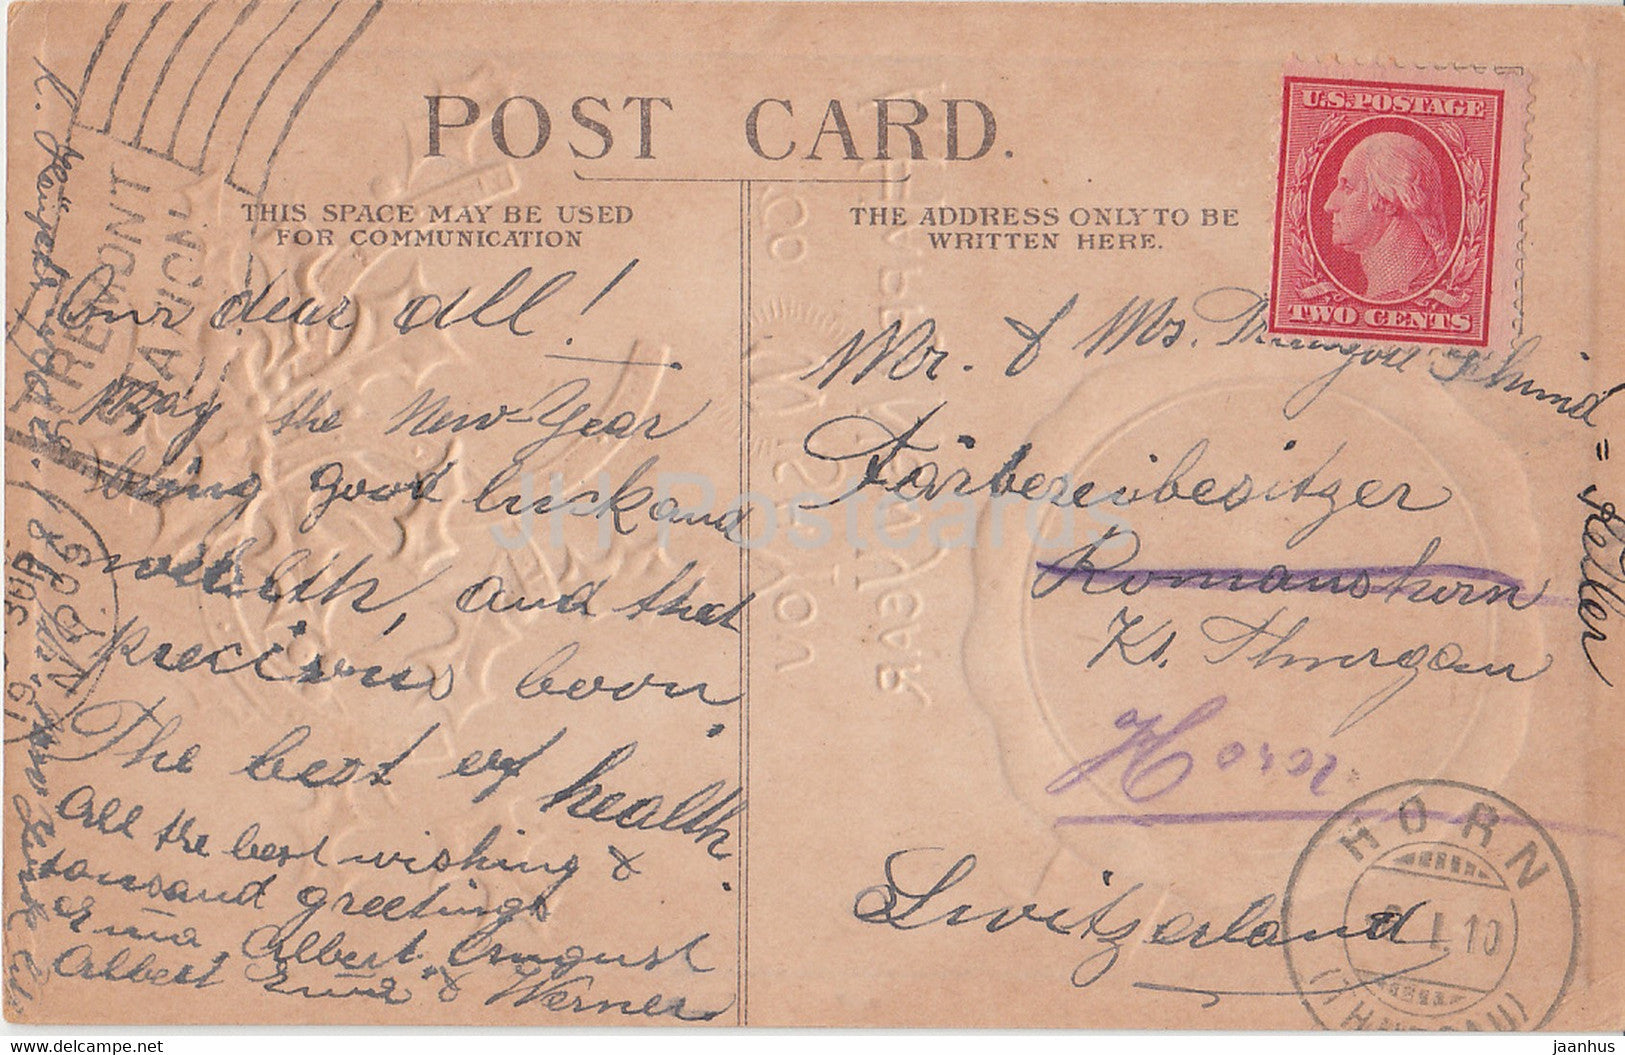 POST CARD.
THIS SPACE MAY BE USED
FOR COMMUNICATION
THE ADDRESS ONLY TO BE
WRITTEN HERE.
U.S. POSTAGE
TWO CENTS
TREMONT
STATION
N.Y.
1909
Our dear all!
May the New-Year
bring good luck and
health, and that
precious boon.
The best of health.
All the best wishing &
tousand greetings
Emma, Albert, August
Albert Emma & Werner
Mr. & Ms. Schmid=
Keller
Färbereibesitzer
Romanshorn
Kt. Thurgau
Horn
Switzerland
HORN
I.10
(THURGAU)
JH Postcards
www.delcampe.net
jaanhus